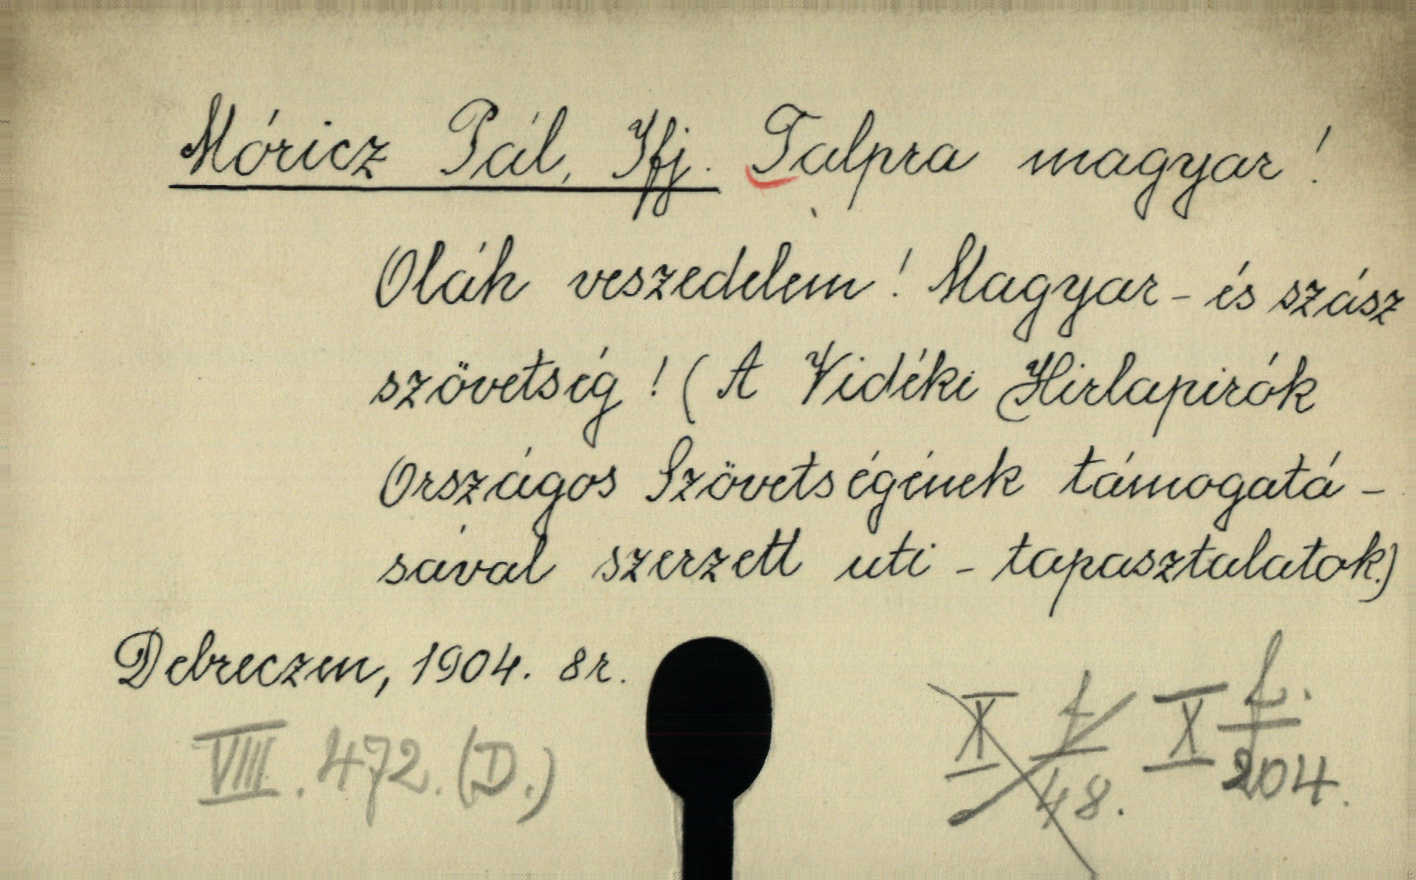 Móricz Pál, Ifj. Talpra magyar!
Oláh veszedelem! Magyar- és szász
szövetség! (A Vidéki Hirlapirók
Országos Szövetségének támogatá-
sával szerzett uti-tapasztalatok.)
Debreczen, 1904. 8r.
VIII. 472. (D.)
X f/48.
X f./204.